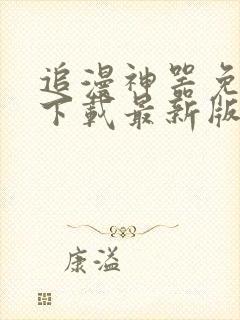 追漫神器免
下载最新版
康溢